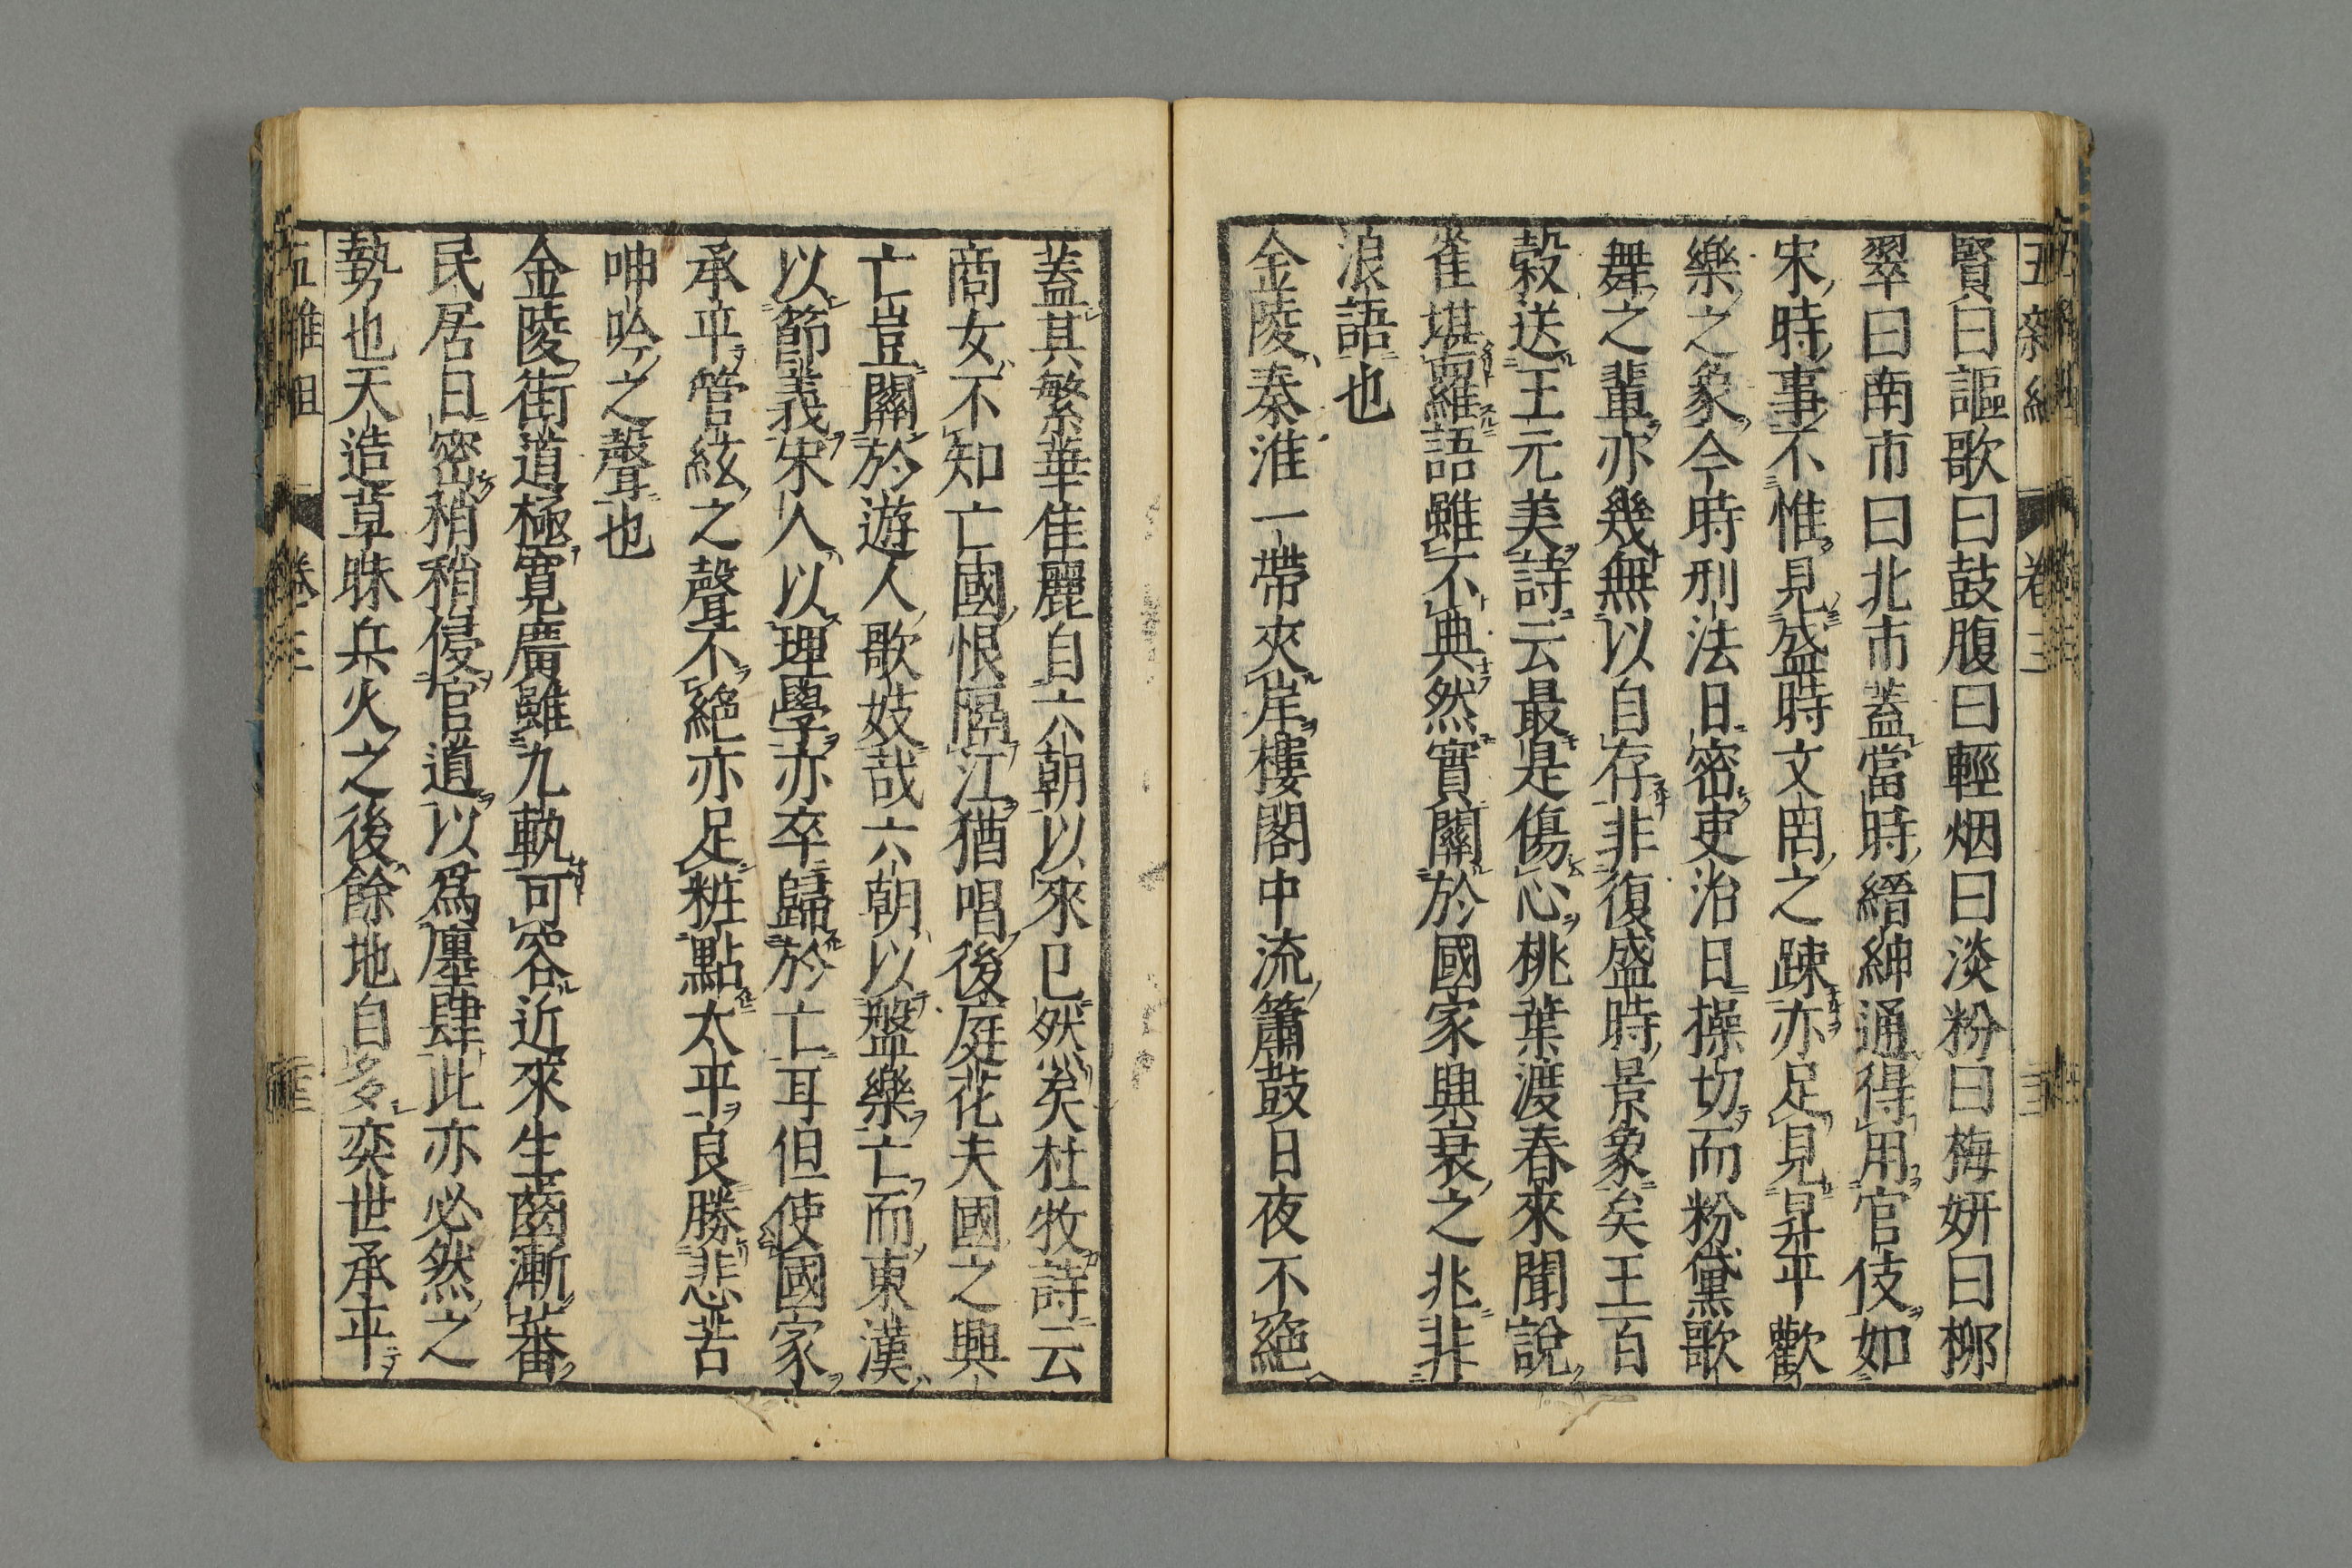 賢曰謳歌曰鼓腹曰輕烟曰淡粉曰梅妍曰柳
翠曰南市曰北市蓋當時縉紳通得用官伎如
宋時事不惟見盛時文罔之踈亦足見昇平歡
樂之象今時刑法日密吏治日操切而粉黛歌
舞之輩亦幾無以自存非復盛時景象矣王百
穀送王元美詩云最是傷心桃葉渡春來聞說
雀堪羅語雖不典然實關於國家興衰之兆非
浪語也
金陵秦淮一帶夾岸樓閣中流簫鼓日夜不絕
蓋其繁華佳麗自六朝以來已然矣杜牧詩云
商女不知亡國恨隔江猶唱後庭花夫國之興
亡豈關於遊人歌妓哉六朝以盤樂亡而東漢
以節義宋人以理學亦卒歸於亡耳但使國家
承平管絃之聲不絕亦足粧點太平良勝悲苦
呻吟之聲也
金陵街道極寬廣雖九軌可容近來生齒漸蕃
民居日密稍稍侵官道以爲廛肆此亦必然之
勢也天造草昧兵火之後餘地自多奕世承平
五雜組
卷三